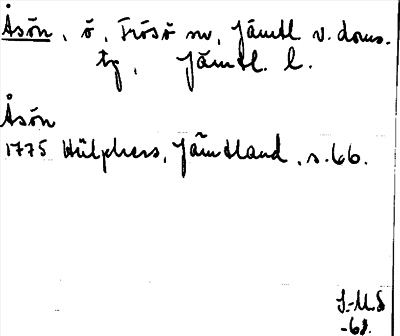 Åsön, ö, Frösö sn, Jämtl v. doms.
tg, Jämtl. l.
Åsön
1775 Hülphers, Jämtland, s. 66.
J-M.S
-68.